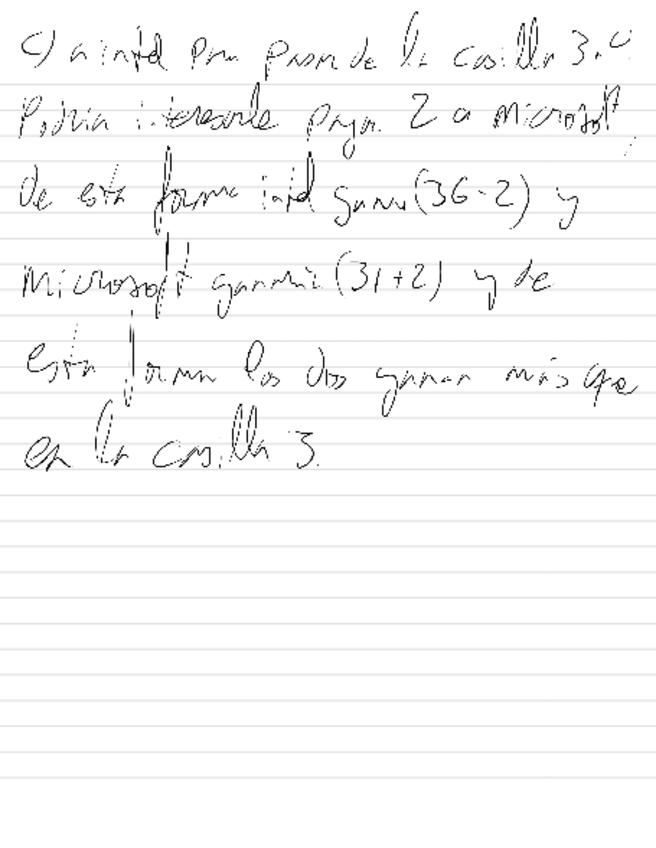 c) a intel para pasar de la casilla 3.
Podria interesarle pagar 2 a microsoft,
de esta forma intel gana (36-2) y
microsoft ganaria (31+2) y de
esta forma los dos ganan más que
en la casilla 3.